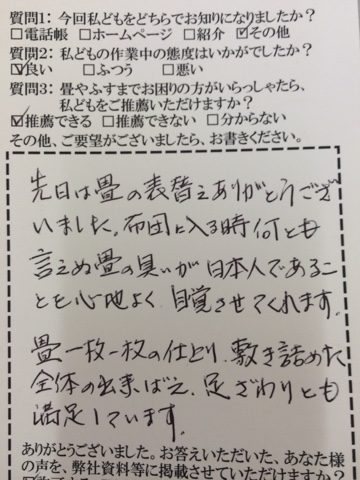 質問1: 今回私どもをどちらでお知りになりましたか?
□電話帳 □ホームページ □紹介 ☑その他
質問2: 私どもの作業中の態度はいかがでしたか?
☑良い □ふつう □悪い
質問3: 畳やふすまでお困りの方がいらっしゃたら、
私どもをご推薦いただけますか?
☑推薦できる □推薦できない □分からない
その他、ご要望がございましたら、お書きください。
先日は畳の表替えありがとうござ
いました。布団に入る時何とも
言えぬ畳の臭いが日本人であるこ
とを心地よく目覚させてくれます。
畳一枚一枚の仕上り、敷き詰めた
全体の出来ばえ、足ざわりとも
満足しています。
ありがとうございました。お答えいただいた、あなた様
の声を、弊社資料等に掲載させていただけますか?